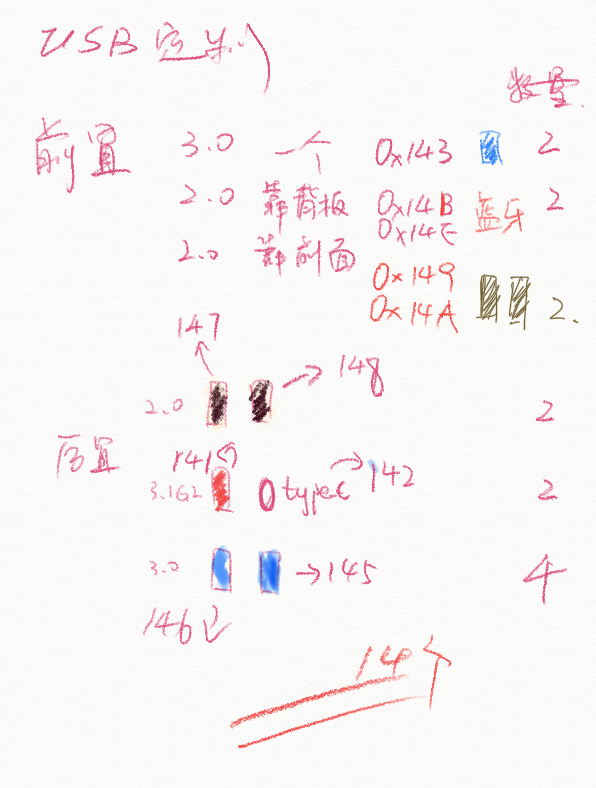 USB定制
数量.
前置 3.0 一个 0x143 2
2.0 靠背板 0x14B 0x14E 蓝牙 2
2.0 靠前面 0x149 0x14A 2.
147
2.0 148 2
后置 141
3.1G2 typeC 142 2
3.0 145 4
146
14个